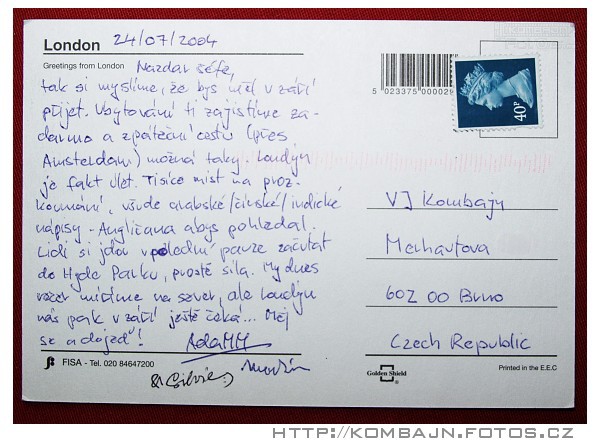 London 24/07/2004
Greetings from London Nazdar šéfe,
tak si myslíme, že bys měl v září
přijet. Ubytování ti zajistíme za-
darmo a zpáteční cestu (přes
Amsterdam) možná taky. Londýn
je fakt úlet. Tisíce míst na proz-
koumání, všude arabské/čínské/indické
nápisy - Angličana abys pohledal.
Lidi si jdou v polední pauze začutat
do Hyde Parku, prostě síla. My dnes
večer míříme na sever, ale Londýn
nás pak v září ještě čeká... Měj
se a dojeď!
AdaMM
Martin
& Silvie :)
FISA - Tel. 020 84647200
5 023375 000029
40P
VJ Kombajn
Merhautova
602 00 Brno
Czech Republic
Golden Shield
Printed in the E.E.C
HTTP://KOMBAJN.FOTOS.CZ